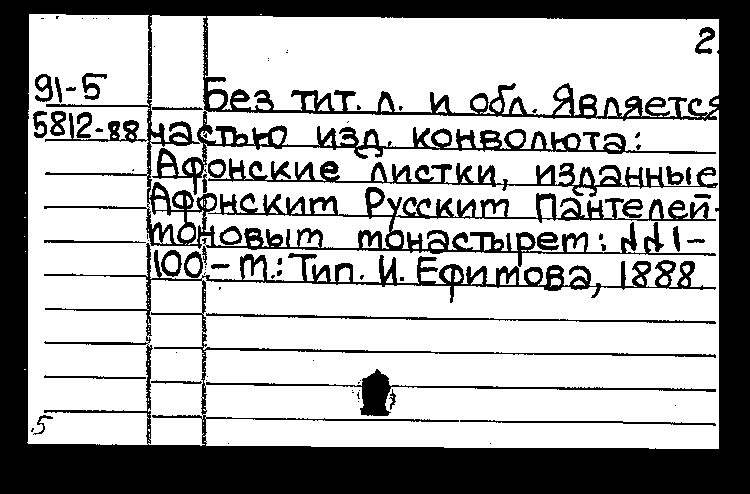 2.
91-5 Без тит. л. и обл. Является
5812-88 частью изд. конволюта:
Афонские листки, изданные
Афонским Русским Пантелей-
моновым монастырем: №№ 1-
100 - М.: Тип. И. Ефимова, 1888.
5